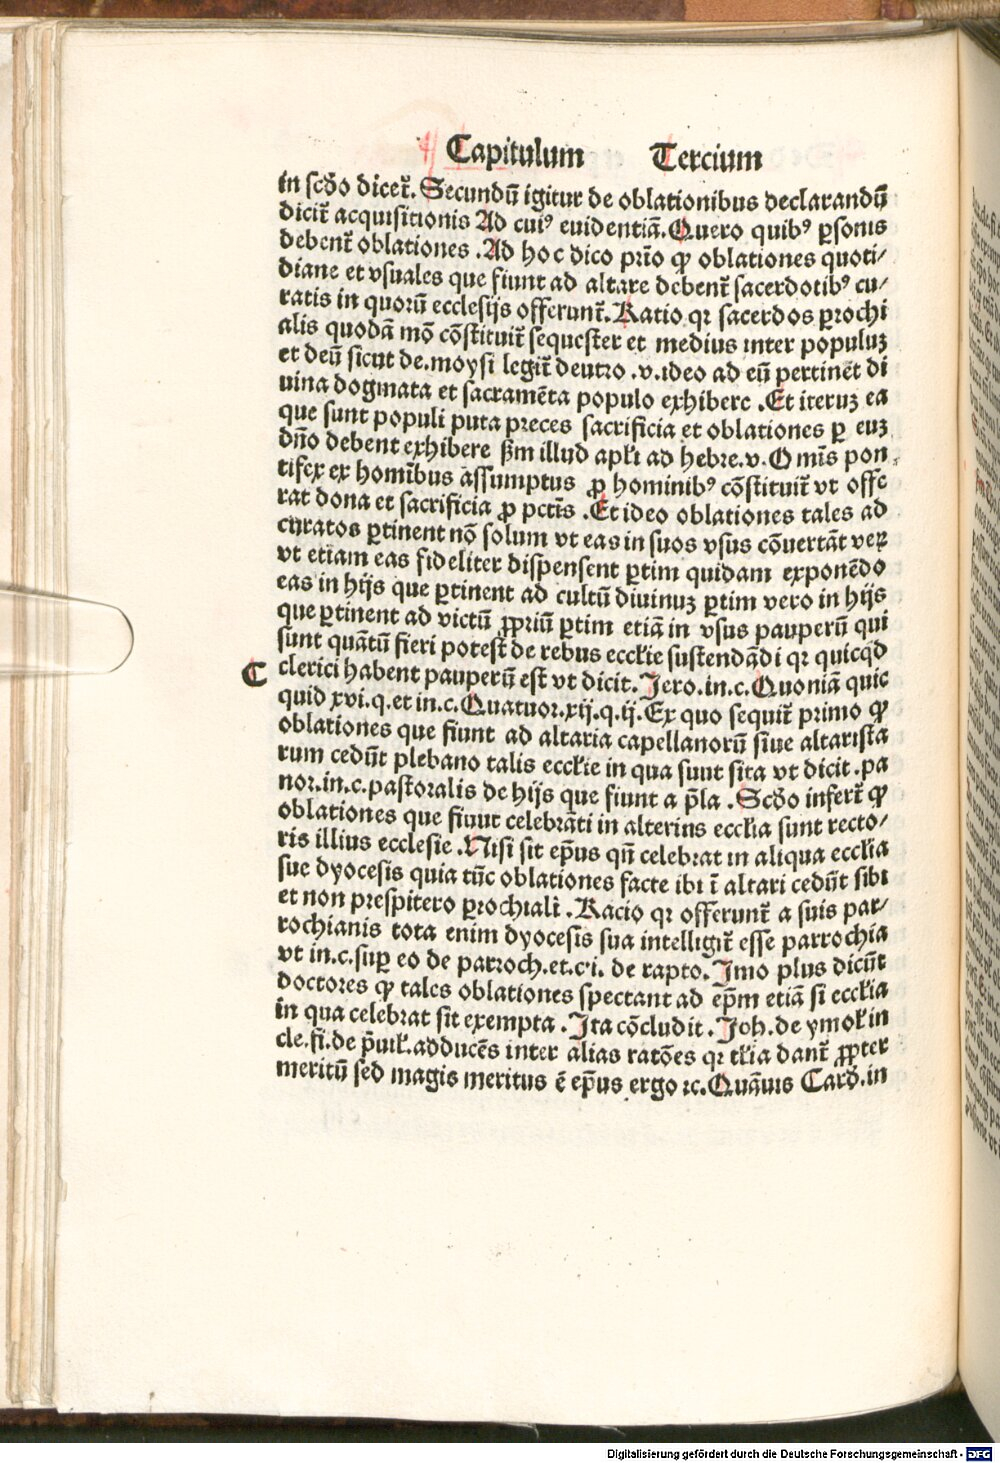 Capitulum Tercium
in scđo dicet̄. Secundū igitur de oblationibus declarandū
dicit̄ acquisitionis Ad cuiꝰ euidentiā. Quero quibꝰ ꝑsonis
debent̄ oblationes. Ad hoc dico prīo ꝙ oblationes quoti/
diane et vsuales que fiunt ad altare debent̄ sacerdotibꝰ cu/
ratis in quorū ecclesijs offerunt̄. Ratio qꝛ sacerdos ꝑrochi
alis quodā mō cōstituit̄ sequester et medius inter populuꝫ
et deū sicut de.moysi legit̄ deutro .v.ideo ad eū pertinēt di
uina dogmata et sacramēta populo exhibere .Et iteruꝫ ea
que sunt populi puta preces sacrificia et oblationes ꝑ euꝫ
dn̄o debent exhibere ẜm illud apłi ad hebre.v. Omīs pon
tifex ex homībus assumptus ꝓ hominibꝰ cōstituit̄ vt offe
rat dona et sacrificia ꝓ pctīs .Et ideo oblationes tales ad
curatos ꝑtinent nō solum vt eas in suos vsus cōuertāt veꝝ
vt etiam eas fideliter dispensent ꝑtim quidam exponēdo
eas in hijs que ꝑtinent ad cultū diuinuꝫ ꝑtim vero in hijs
que ꝑtinent ad victū ꝓpriū ꝑtim etiā in vsus pauperū qui
sunt quātū fieri potest de rebus eccłie sustendādi qꝛ quicqd
C clerici habent pauperū est vt dicit. Jero.in.c.Quoniā quic
quid xvi.q.et in.c.Quatuor.xij.q.ij. Ex quo sequit̄ primo ꝙ
oblationes que fiunt ad altaria capellanorū siue altarista
rum cedūt plebano talis eccłie in qua sunt sita vt dicit .pa
nor.in.c.pastoralis de hijs que fiunt a p̄la .Scđo infert̄ ꝙ
oblationes que fiuut celebrāti in alterius eccłia sunt recto/
ris illius ecclesie .Nisi sit ep̄us qn̄ celebrat in aliqua eccłia
sue dyocesis quia tūc oblationes facte ibi ī altari cedūt sibi
et non prespitero ꝑrochiali .Racio qꝛ offerunt̄ a suis par/
rochianis tota enim dyocesis sua intelligit̄ esse parrochia
vt in.c.suꝑ eo de parroch.et.c.i. de rapto. Imo plus dicūt
doctores ꝙ tales oblationes spectant ad ep̄m etiā si eccłia
in qua celebrat sit exempta .Ita cōcludit .Joh.de ymoł in
cle.fi.de p̄uił.adducēs inter alias ratōes qꝛ tłia dant̄ ꝓpter
meritū sed magis meritus ē ep̄us ergo ⁊c.Quāuis Carđ.in
Digitalisierung gefördert durch die Deutsche Forschungsgemeinschaft - DFG